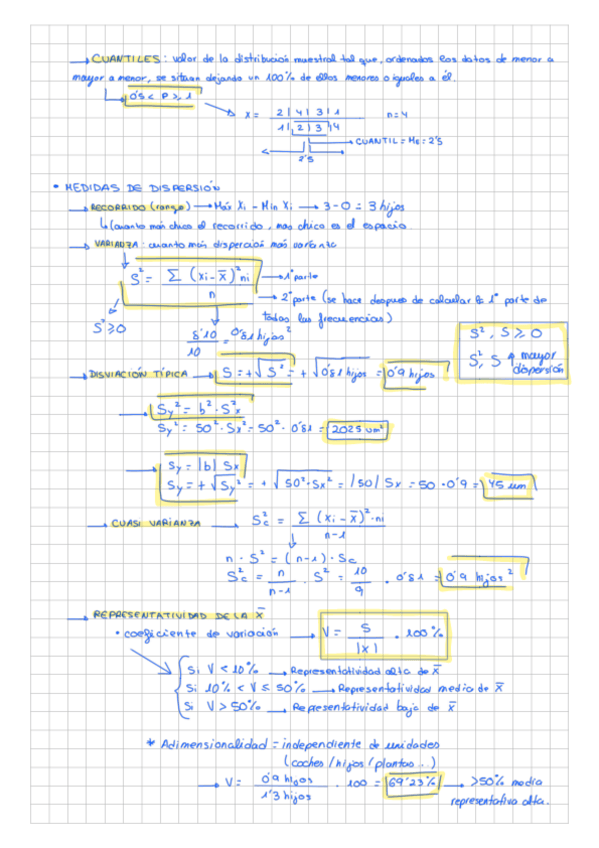 → CUANTILES: valor de la distribución muestral tal que, ordenados los datos de menor a
mayor a menor, se sitúan dejando un 100% de ellos menores o iguales a él.
↳ 0'5 < P ≥ 1
X = 2|4|3|1 n=4
1|2|3|4
→ CUANTIL = Me = 2'5
2'5
• MEDIDAS DE DISPERSIÓN
→ RECORRIDO (rango) → Máx Xi - Min Xi → 3-0 = 3 hijos
↳ (cuanto más chico el recorrido, mas chico es el espacio.
→ VARIANZA: cuanto más disperción más varianza
S² = Σ (xi - x̄)² ni / n
→ 1ª parte
→ 2ª parte (se hace despues de calcular la 1ª parte de
todas las frecuencias)
S² ≥ 0
8'10 / 10 = 0'81 hijos²
S², S ≥ 0
S², S ↑ mayor
dispersión
→ DISVIACIÓN TÍPICA → S = +√S² = +√0'81 hijos = 0'9 hijos
→ Sy² = b² · S²x
Sy² = 50² · Sx² = 50² · 0'81 = 2025 um²
→ Sy = |b| Sx
Sy = +√Sy² = +√50² · Sx² = |50| Sx = 50 · 0'9 = 45 um
→ CUASI VARIANZA → Sc² = Σ (xi - x̄)² · ni / n-1
n · S² = (n-1) · Sc
Sc² = n / n-1 · S² = 10 / 9 · 0'81 = 0'9 hijos²
→ REPRESENTATIVIDAD DE LA x̄
• coeficiente de variación → V = S / |x| · 100%
Si V < 10% → Representatividad alta de x̄
Si 10% < V ≤ 50% → Representatividad media de x̄
Si V > 50% → Representatividad baja de x̄
* Adimensionalidad = independiente de unidades
(coches / hijos / plantas ...)
→ V = 0'9 hijos / 1'3 hijos · 100 = 69'23% → >50% media
representativa alta.